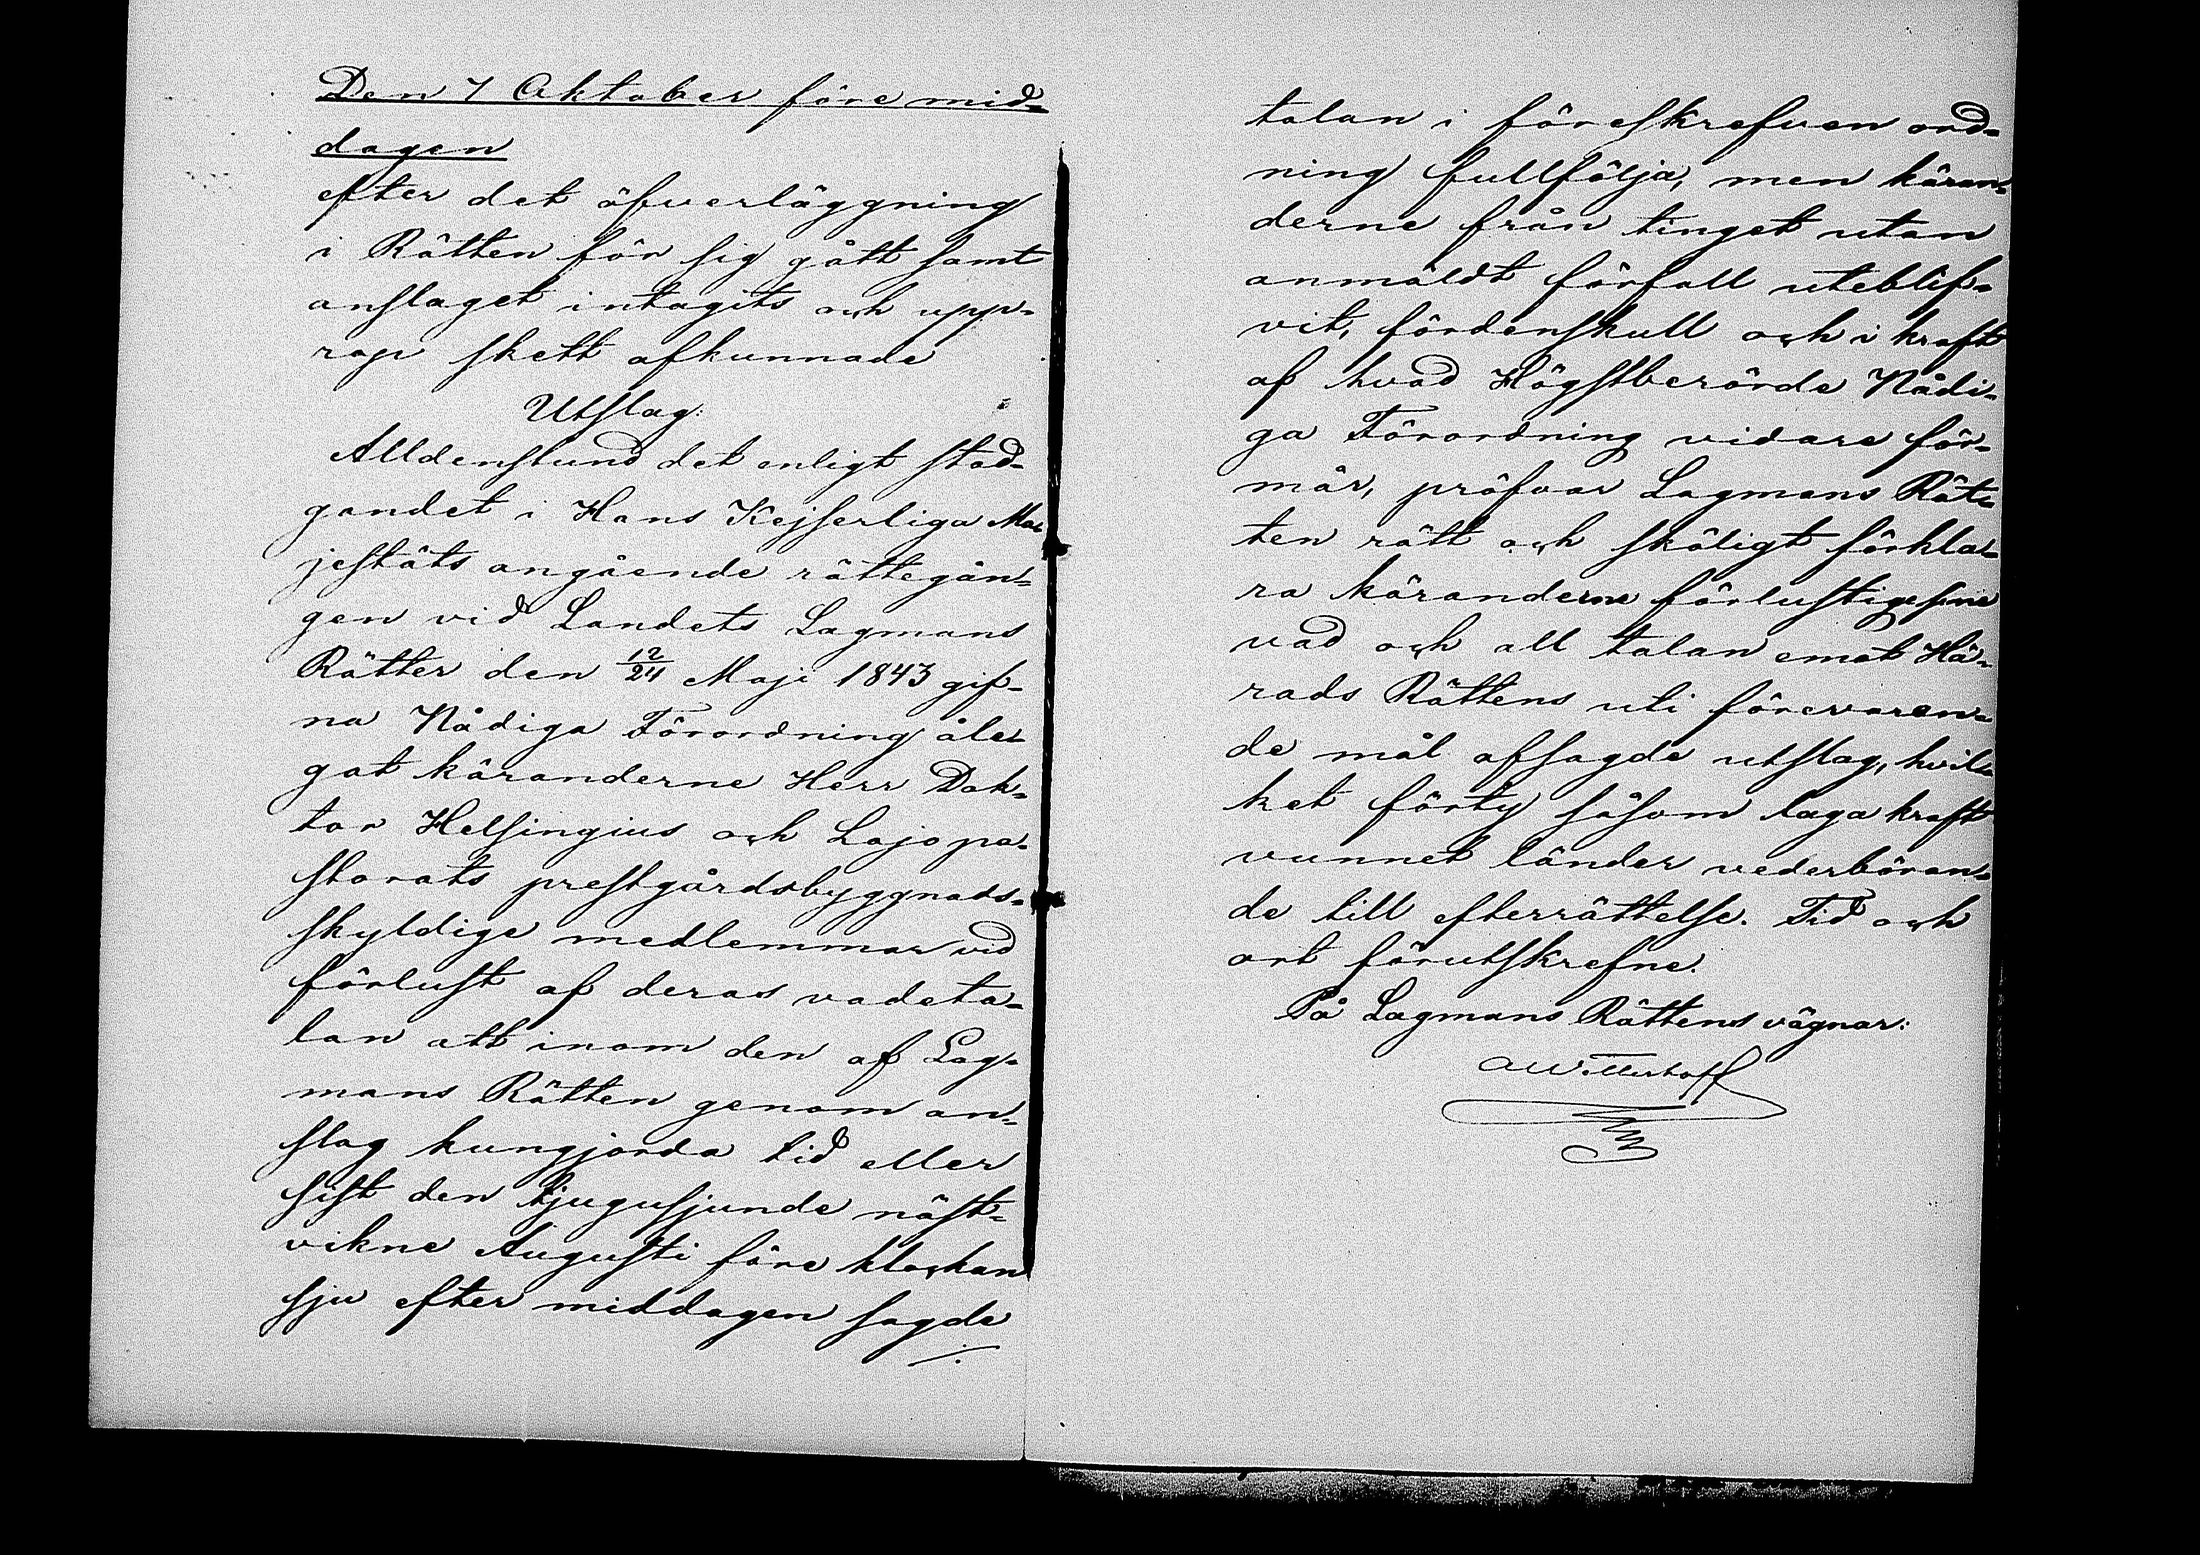 Den 7 Oktober före mid-
dagen
efter det öfverläggning
i Rätten för sig gått samt
anslaget intagits och upp-
rop skett afkunnade
Utslag:
Alldenstund det enligt stad-
gandet i Hans Kejserliga Ma-
jestäts angående rättegån-
gen vid Landets Lagmans
Rätter den 12/24 Maji 1843 gif-
na Nådiga Förordning åle-
gat käranderne Herr Dok-
tor Helsingius och Lojo pa-
storats prestgårdsbyggnads-
skyldige medlemmar vid
förlust af deras vadeta-
lan att inom den af Lag-
mans Rätten genom an-
slag kungjorda tid eller
sist den tjugusjunde näst-
vikne Augusti före klockan
sju efter middagen sagde
./.
talan i föreskrefven ord-
ning fullfölja, men käran-
derne från tinget utan
anmäldt förfall uteblif-
vit, fördenskull och i kraft
af hvad Högstberörde Nådi-
ga Förordning vidare för-
mår, pröfvar Lagmans Rät-
ten rätt och skäligt förkla-
ra käranderne förlustige sine
vad och all talan emot Hä-
rads Rättens uti förevaran-
de mål afsagde utslag, hvil-
ket förty såsom laga kraft
vunnet länder vederböran-
de till efterrättelse. Tid och
ort förutskrefne.
På Lagmans Rättens vägnar: